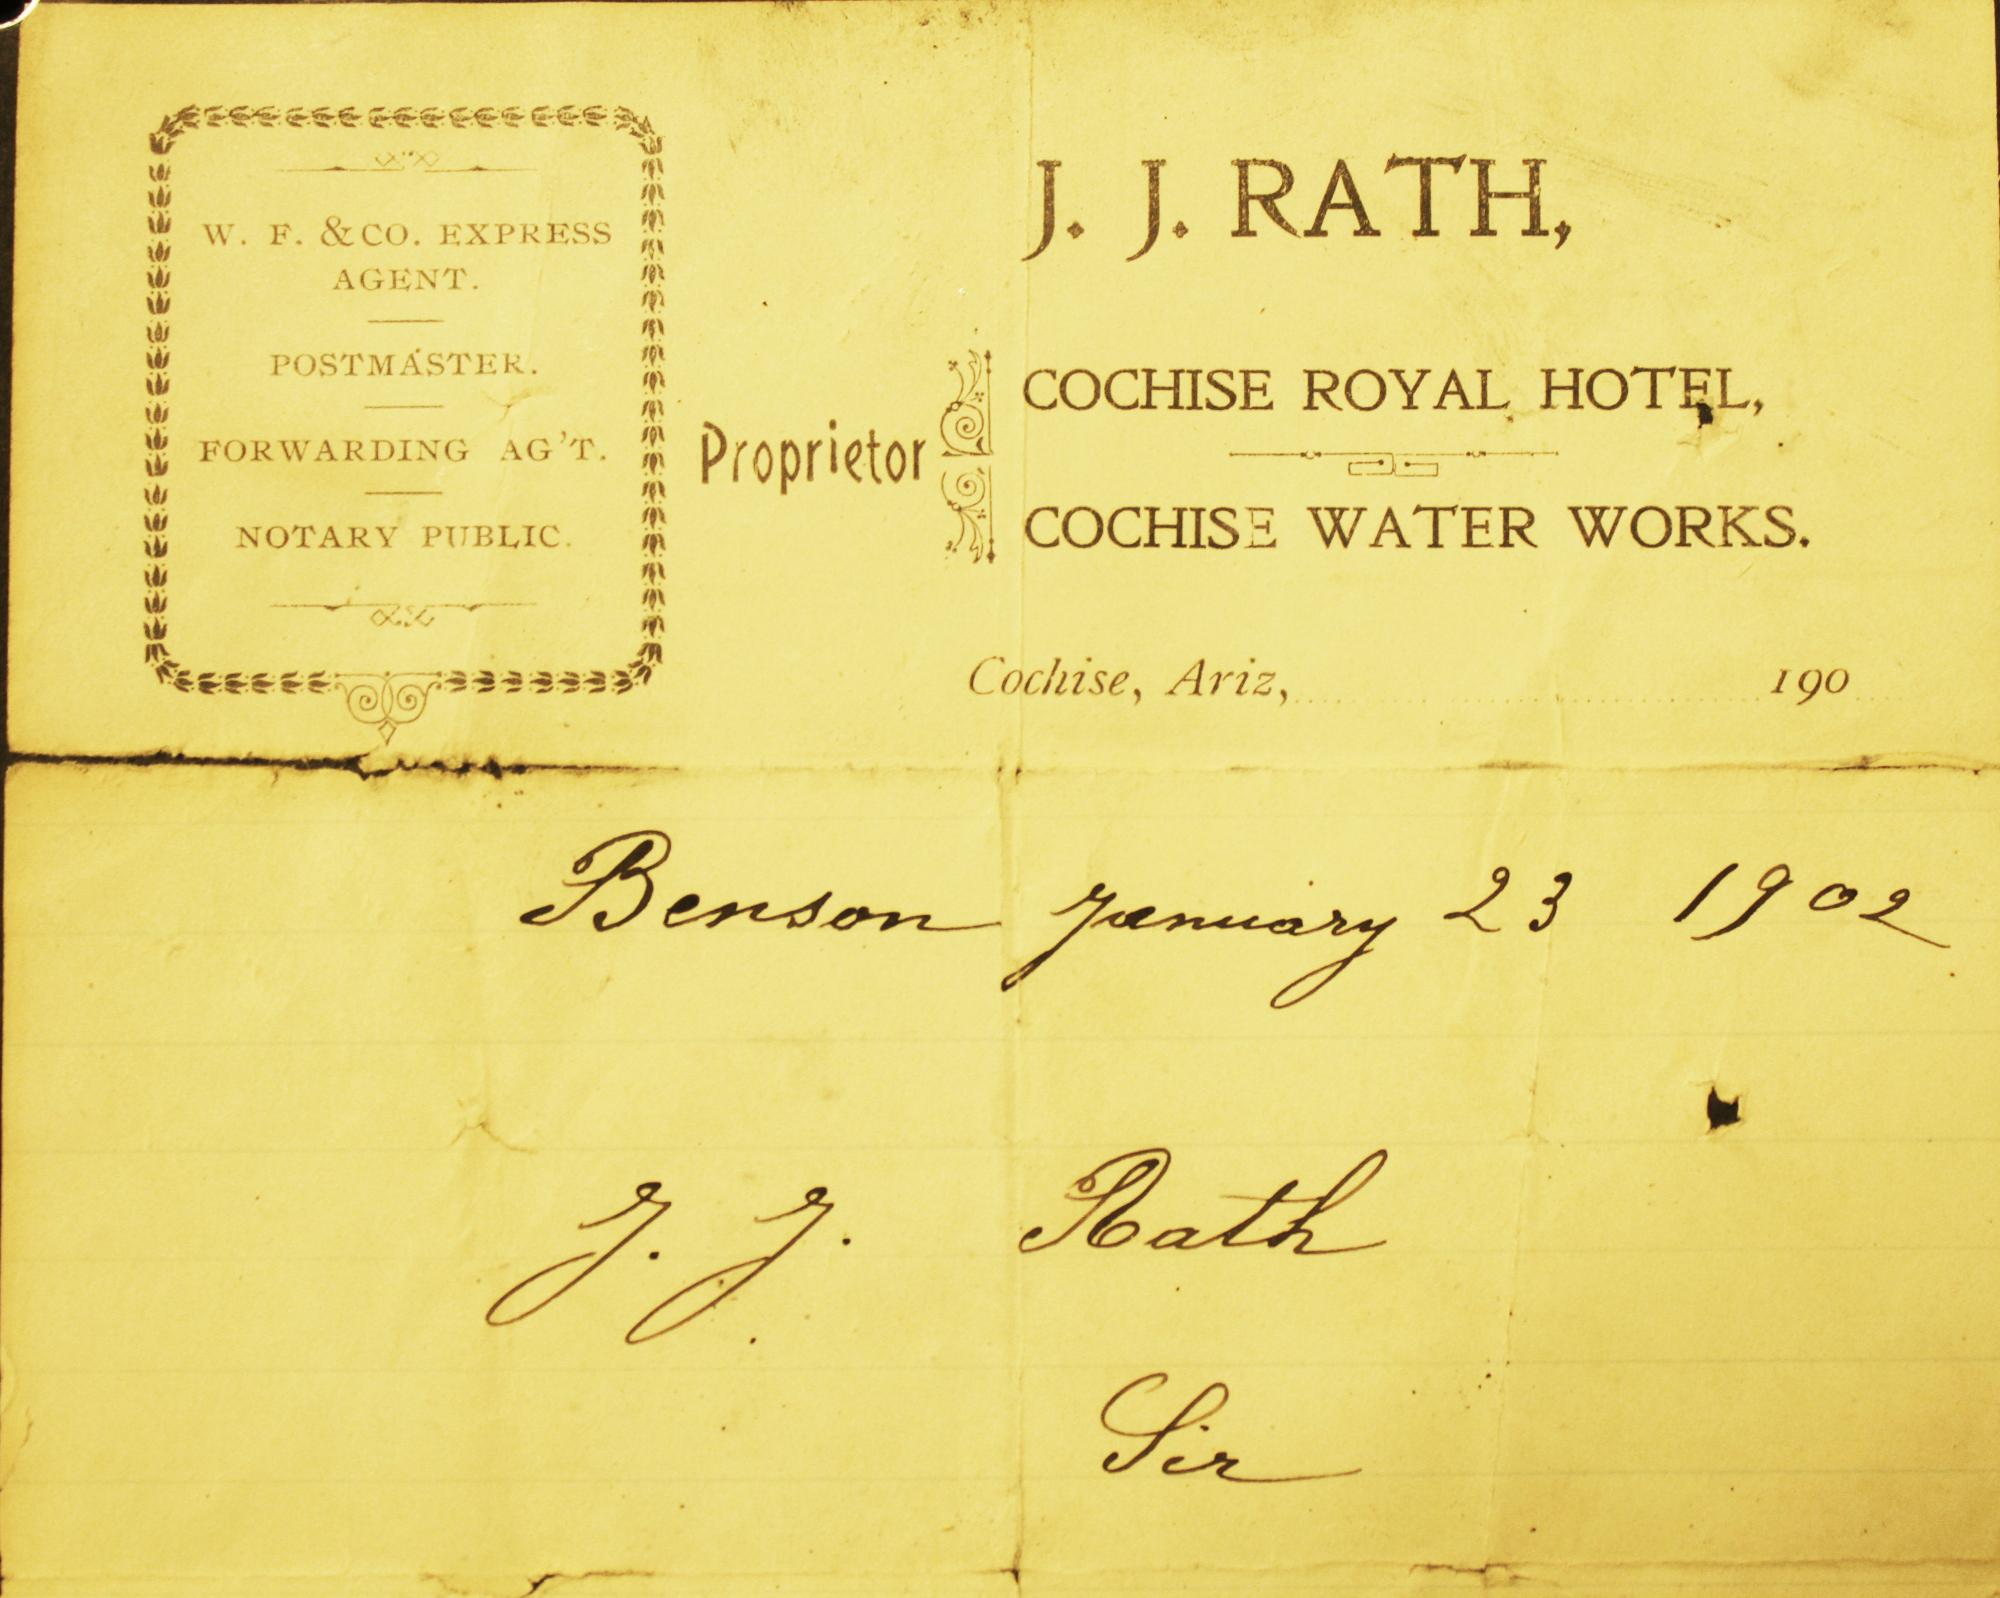 W. F. & CO. EXPRESS
AGENT.
POSTMASTER.
FORWARDING AG'T.
NOTARY PUBLIC.
J. J. RATH,
Proprietor
COCHISE ROYAL HOTEL,
COCHISE WATER WORKS.
Cochise, Ariz, 190
Benson January 23 1902
J. J. Rath
Sir